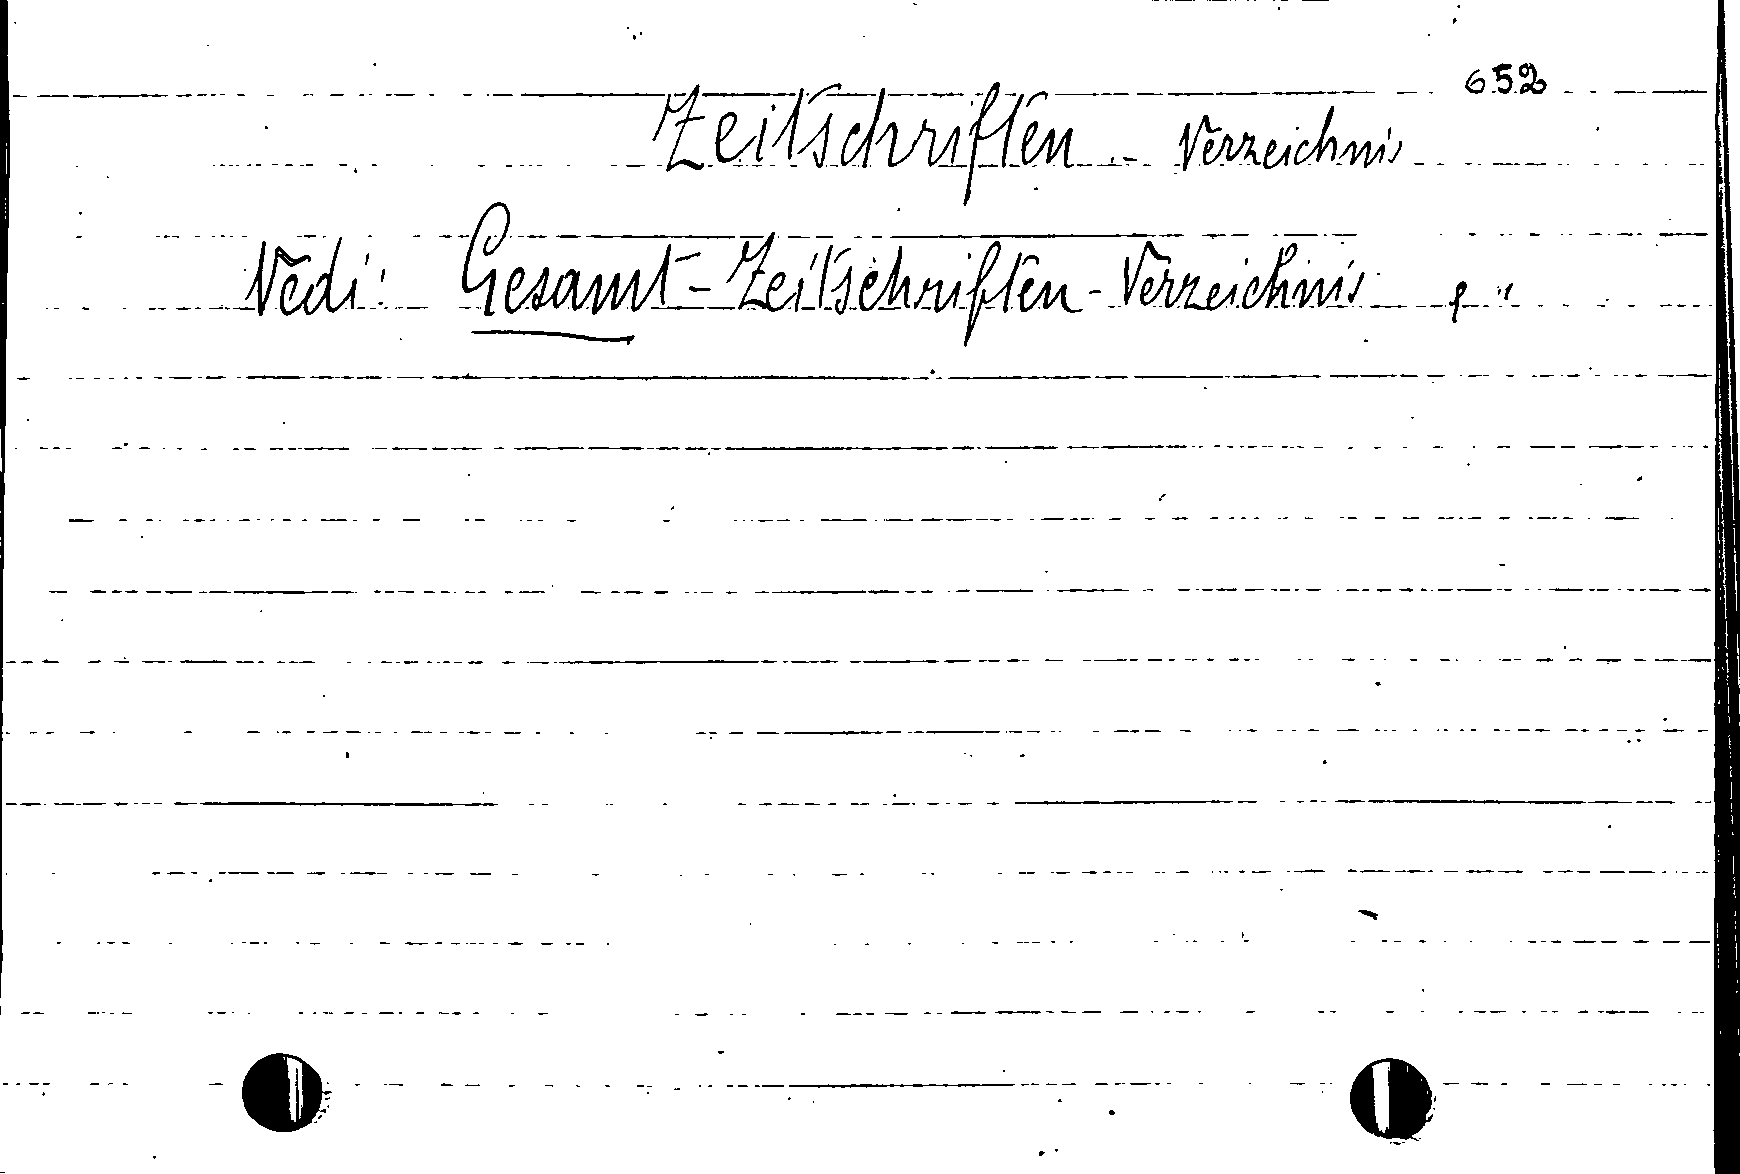 652
Zeitschriften - Verzeichnis
Vedi: Gesamt-Zeitschriften-Verzeichnis